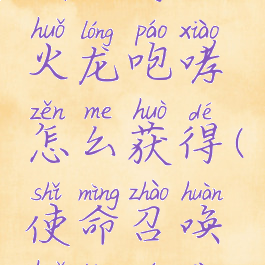 huǒ lóng páo xiào
火龙咆哮
zěn me huò dé
怎么获得(
shǐ mìng zhào huàn
使命召唤